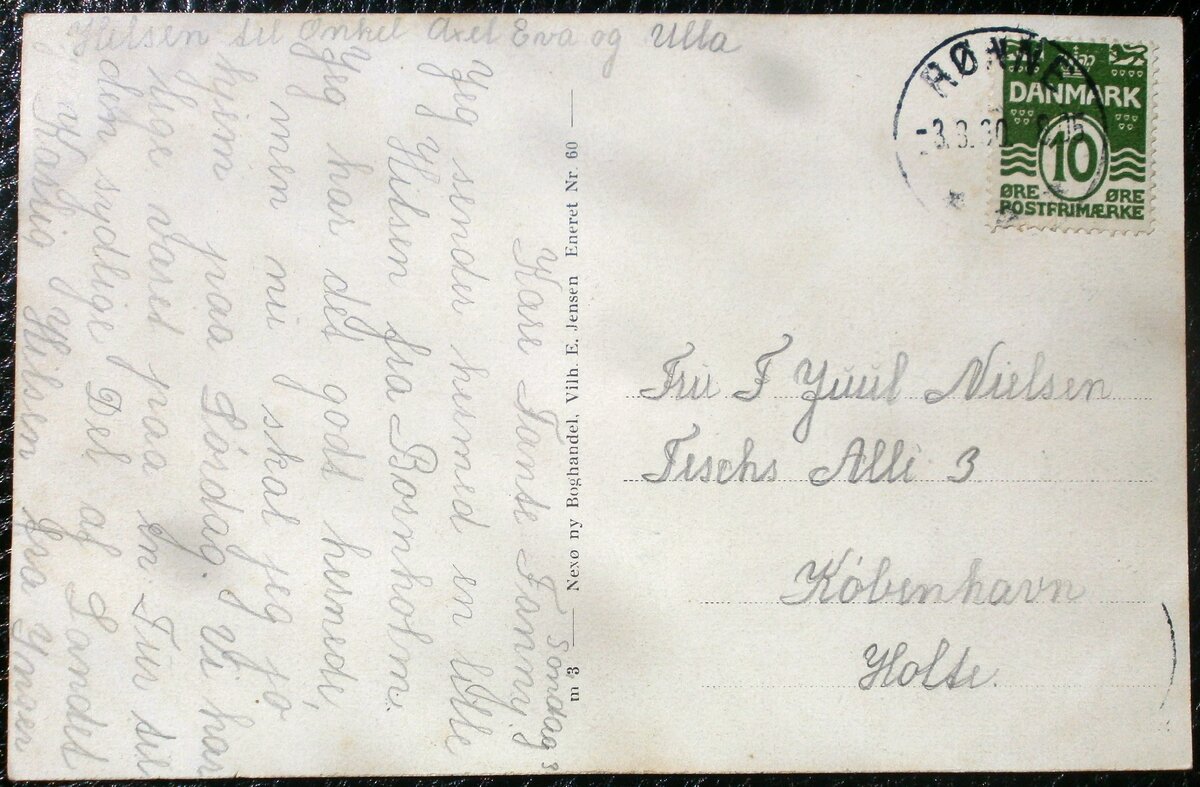 Hilsen til Onkel Axel Eva og Ulla
Søndag 3
Kære Tante Fanny.
Jeg sender hermed en lille
Hilsen fra Bornholm.
Jeg har det godt hernede,
men nu skal jeg jo
hjem paa Lørdag. Vi har
lige været paa en Tur til
den sydlige Del af Landet
Kærlig Hilsen fra
m 3 — Nexø ny Boghandel, Vilh. E. Jensen Eneret Nr. 60 —
RØNNE
-3.8.30. 8-15
DANMARK
10
ØRE ØRE
POSTFRIMÆRKE
Fru F Juul Nielsen
Fischs Alle 3
København
Holte.